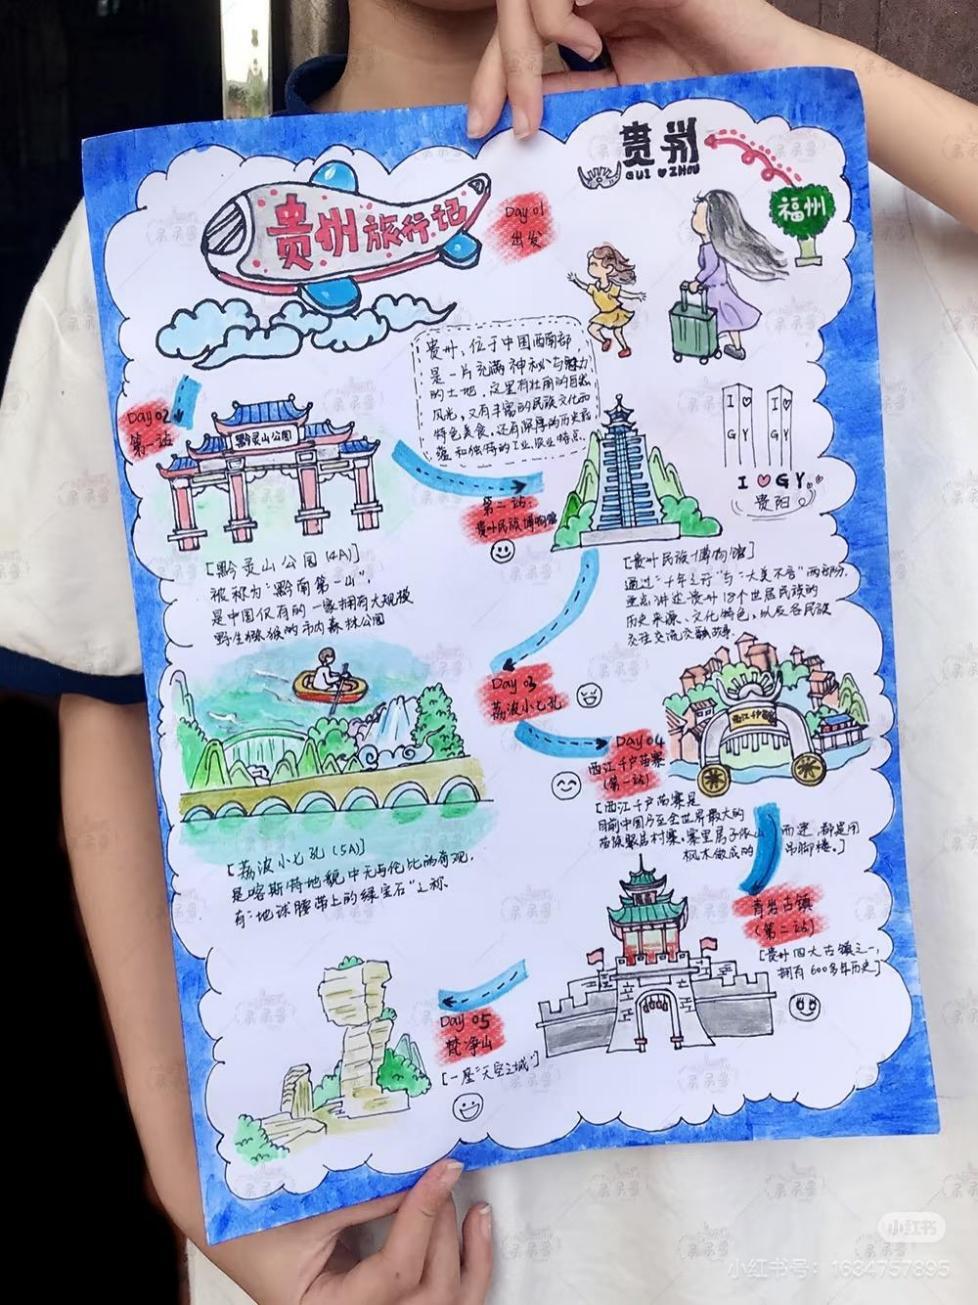 贵州旅行记
Day 01
出发
贵州
GUI ZHOU
福州
贵州，位于中国西南部
是一片充满神秘与魅力
的土地，这里有壮丽的自然
风光，又有丰富的民族文化和
特色美食，还有深厚的历史底
蕴和独特的工业、农业特点。
Day 02
第一站
黔灵山公园
I ♥ I ♥
GY GY
I ♥ GY
贵阳
第二站：
贵州民族博物馆
[黔灵山公园(4A)]
被称为“黔南第一山”，
是中国仅有的一家拥有大规模
野生猕猴的市内森林公园
[贵州民族博物馆]
通过“十年之行”与“大美不言”两部分，
重点讲述贵州18个世居民族的
历史来源、文化特色，以及各民族
交往交流交融故事.
Day 03
荔波小七孔
Day 04
西江千户苗寨
(第一站)
西江千户苗寨
[西江千户苗寨是
目前中国乃至全世界最大的
苗族聚居村寨，寨里房子依山而建，都是用
枫木做成的吊脚楼。]
[荔波小七孔(5A)]
是喀斯特地貌中无与伦比的奇观，
有“地球腰带上的绿宝石”之称.
青岩古镇
(第二站)
[贵州四大古镇之一，
拥有600多年历史]
Day 05
梵净山
[一座“天空之城”]
小红书
小红书号：1634757895